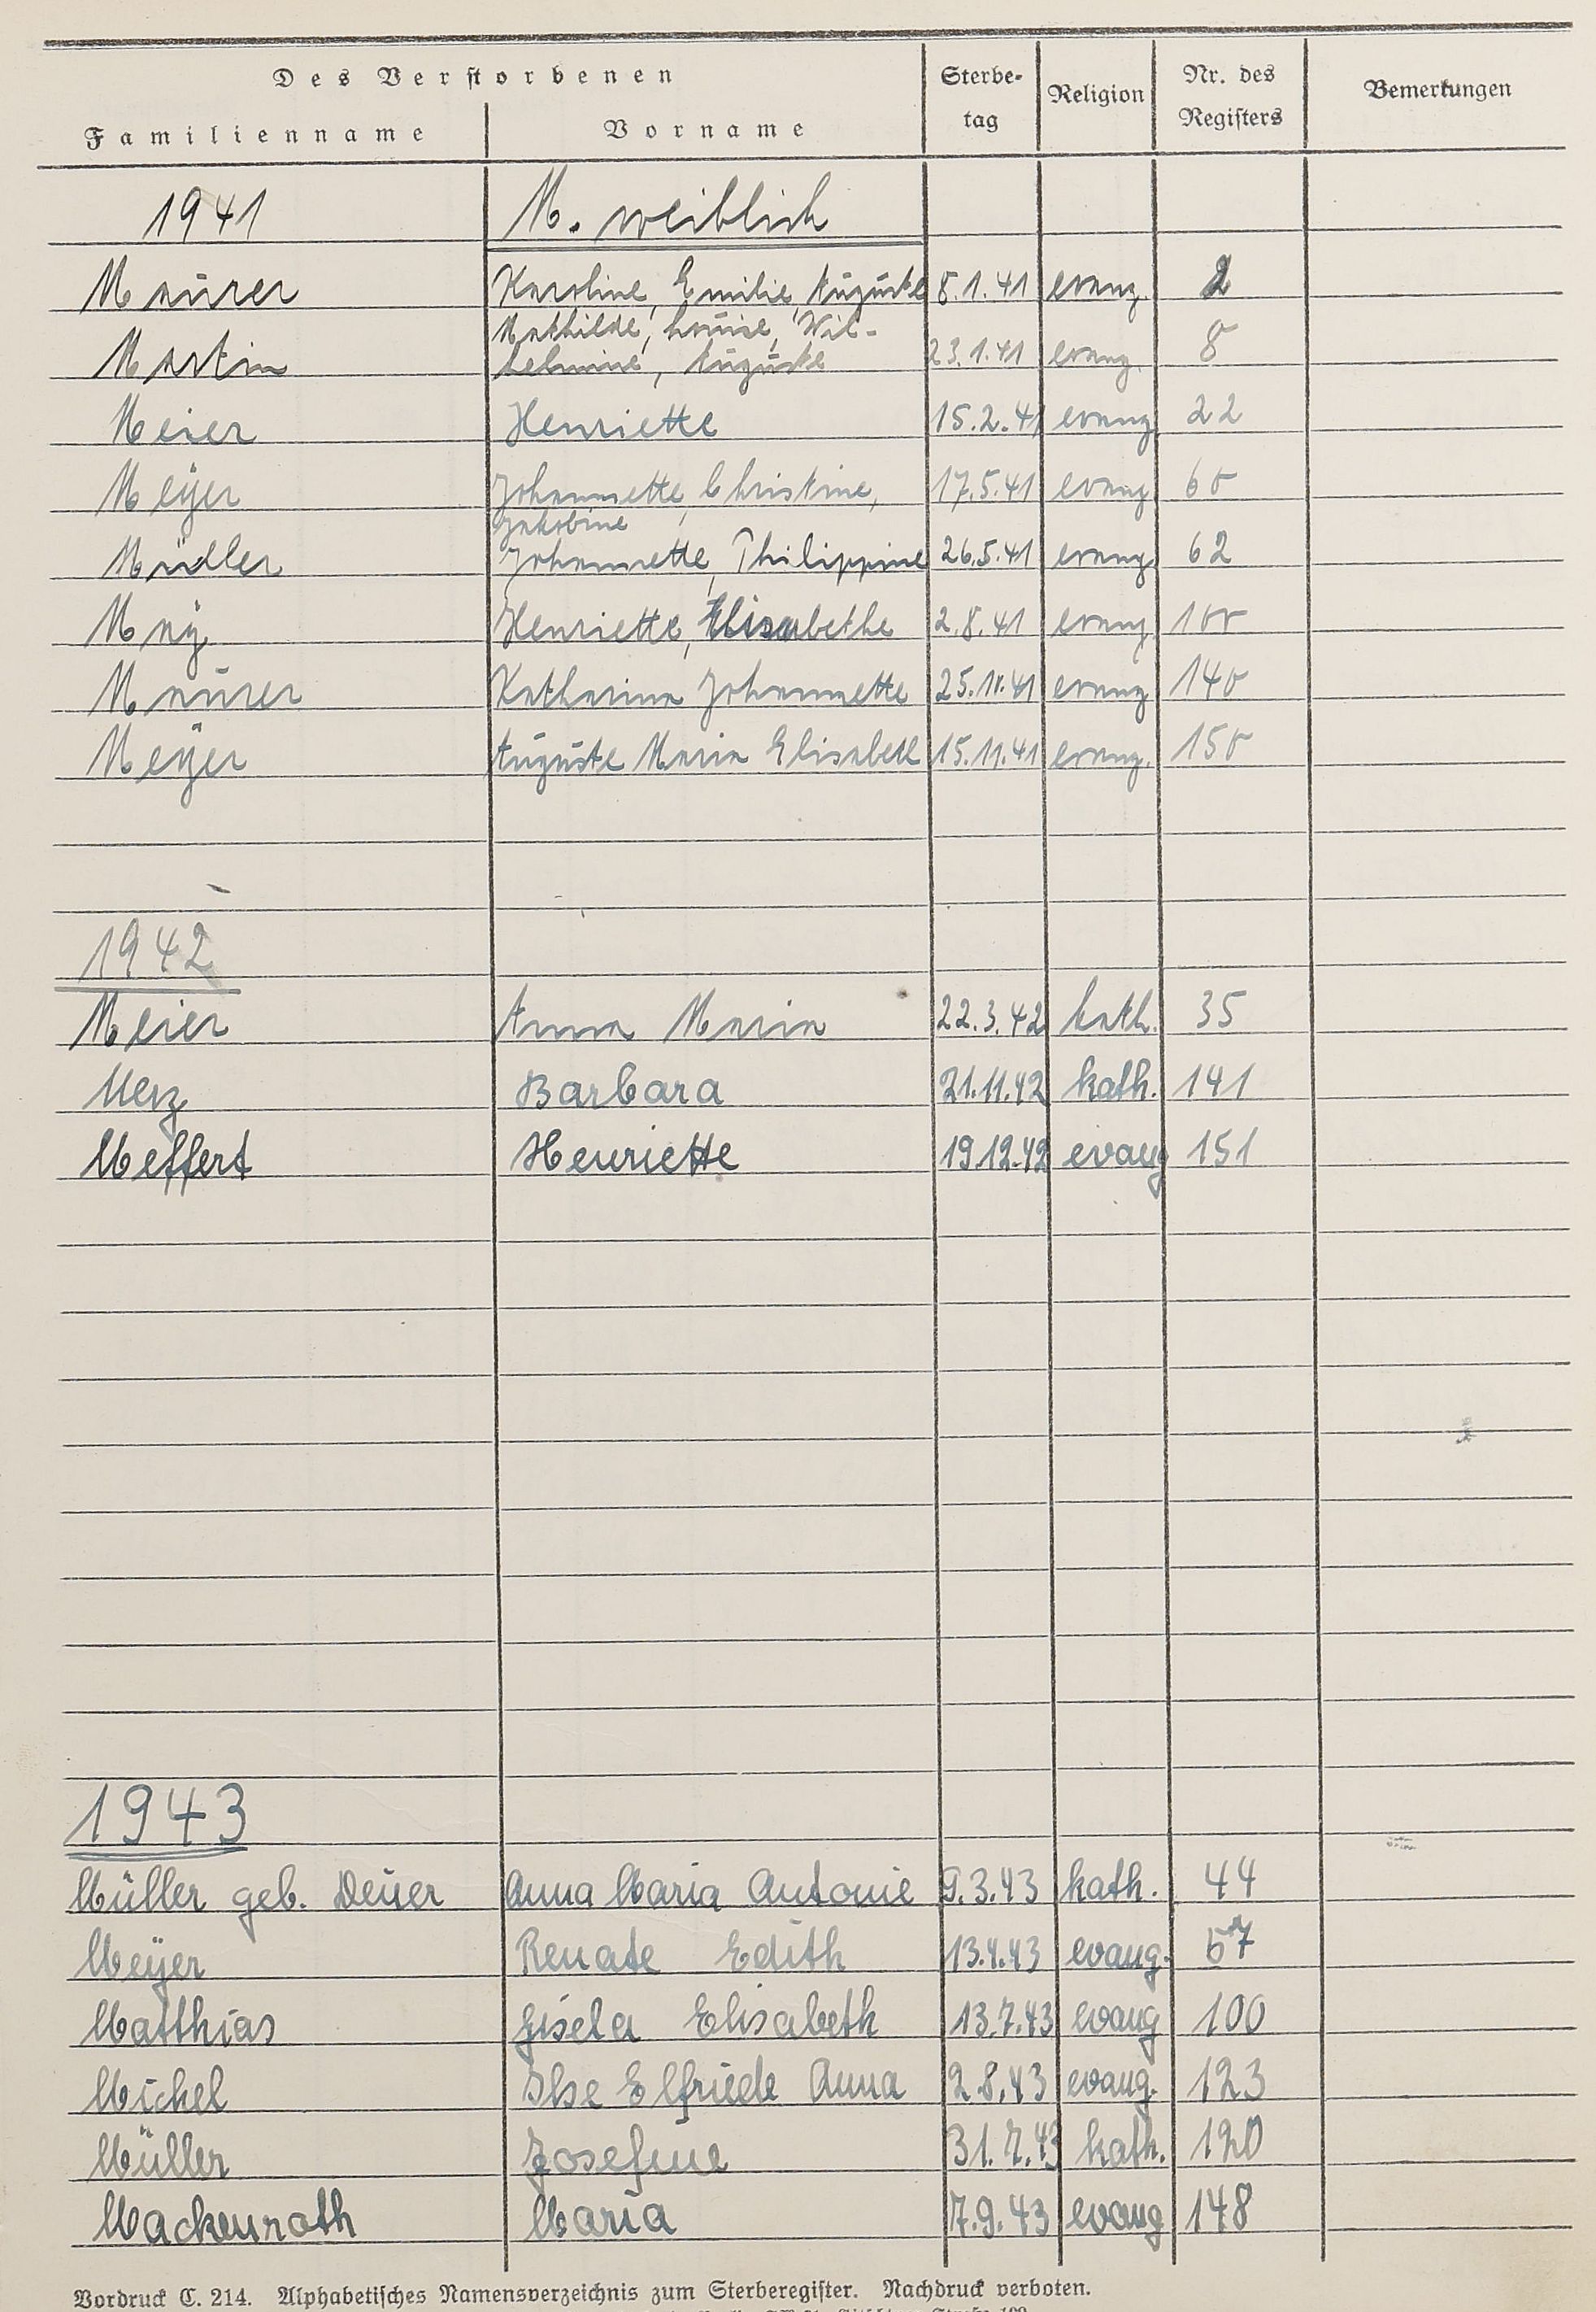 Des Verstorbenen
Familienname Vorname Sterbe-tag Religion Nr. des Registers Bemerkungen
1941 M. weiblich
Maurer Karoline, Emilie, Auguste 8.1.41 evang. 2
Mathilde, Louise, Wil-
Martin helmine, Auguste 23.1.41 evang. 8
Meier Henriette 15.2.41 evang 22
Meyer Johannette, Christine, 17.5.41 evang 60
Jakobine
Müller Johannette, Philippine 26.5.41 evang 62
May Henriette, Elisabethe 2.8.41 evang 100
Maurer Katharina Johannette 25.10.41 evang 140
Meyer Auguste Maria Elisabeth 15.11.41 evang. 150
1942
Meier Anna Maria 22.3.42 kath. 35
Merz Barbara 21.11.42 kath. 141
Meffert Henriette 19.12.42 evang 151
1943
Müller geb. Deuer Anna Maria Antonie 9.3.43 kath. 44
Meyer Renate Edith 13.4.43 evang. 57
Matthias Gisela Elisabeth 13.7.43 evang 100
Michel Ilse Elfriede Anna 2.8.43 evang. 123
Müller Josefine 31.7.43 kath. 120
Mackenroth Maria 7.9.43 evang 148
Vordruck C. 214. Alphabetisches Namensverzeichnis zum Sterberegister. Nachdruck verboten.